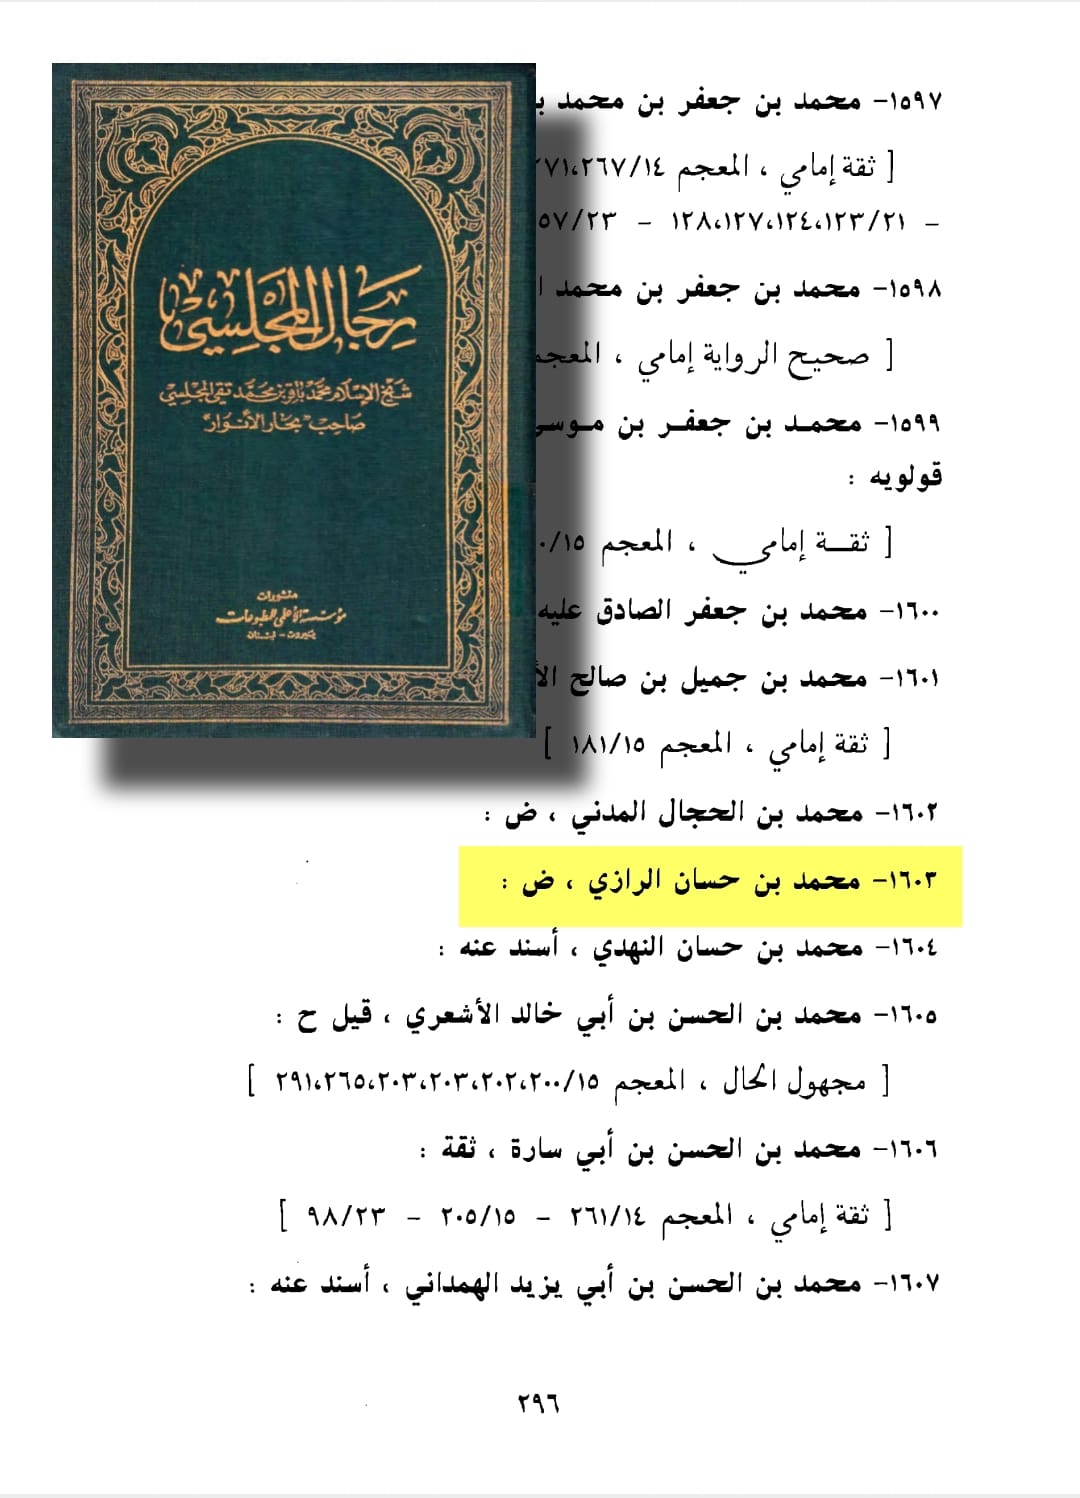 رجال المجلسي
شيخ الإسلام محمد باقر بن محمد تقي المجلسي
صاحب "بحار الأنوار"
منشورات
مؤسسة الأعلمي للمطبوعات
بيروت - لبنان
١٥٩٧- محمد بن جعفر بن محمد
[ ثقة إمامي ، المعجم ٢٦٧/١٤،
- ١٢٣/٢١،١٢٤،١٢٧،١٢٨ -
١٥٩٨- محمد بن جعفر بن محمد
[ صحيح الرواية إمامي ، المعجم
١٥٩٩- محمد بن جعفر بن موسى
قولويه :
[ ثقة إمامي ، المعجم
١٦٠٠- محمد بن جعفر الصادق عليه
١٦٠١- محمد بن جميل بن صالح
[ ثقة إمامي ، المعجم ١٨١/١٥ ]
١٦٠٢- محمد بن الحجال المدني ، ض :
١٦٠٣- محمد بن حسان الرازي ، ض :
١٦٠٤- محمد بن حسان النهدي ، أسند عنه :
١٦٠٥- محمد بن الحسن بن أبي خالد الأشعري ، قيل ح :
[ مجهول الحال ، المعجم ٢٠٠/١٥،٢٠٢،٢٠٣،٢٠٣،٢٦٥،٢٩١ ]
١٦٠٦- محمد بن الحسن بن أبي سارة ، ثقة :
[ ثقة إمامي ، المعجم ٢٦١/١٤ - ٢٠٥/١٥ - ٩٨/٢٣ ]
١٦٠٧- محمد بن الحسن بن أبي يزيد الهمداني ، أسند عنه :
٢٩٦